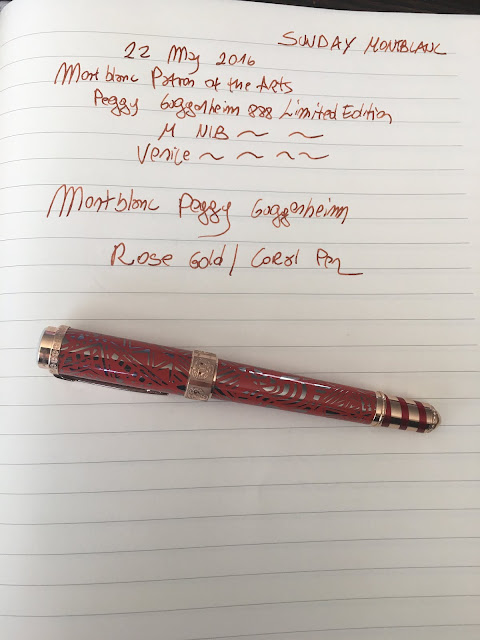 SUNDAY MONTBLANC
22 May 2016
Montblanc Patron of the Arts
Peggy Guggenheim 888 Limited Edition
M NIB ~ ~
Venice ~ ~ ~~
Montblanc Peggy Guggenheim
Rose Gold / Coral Pen